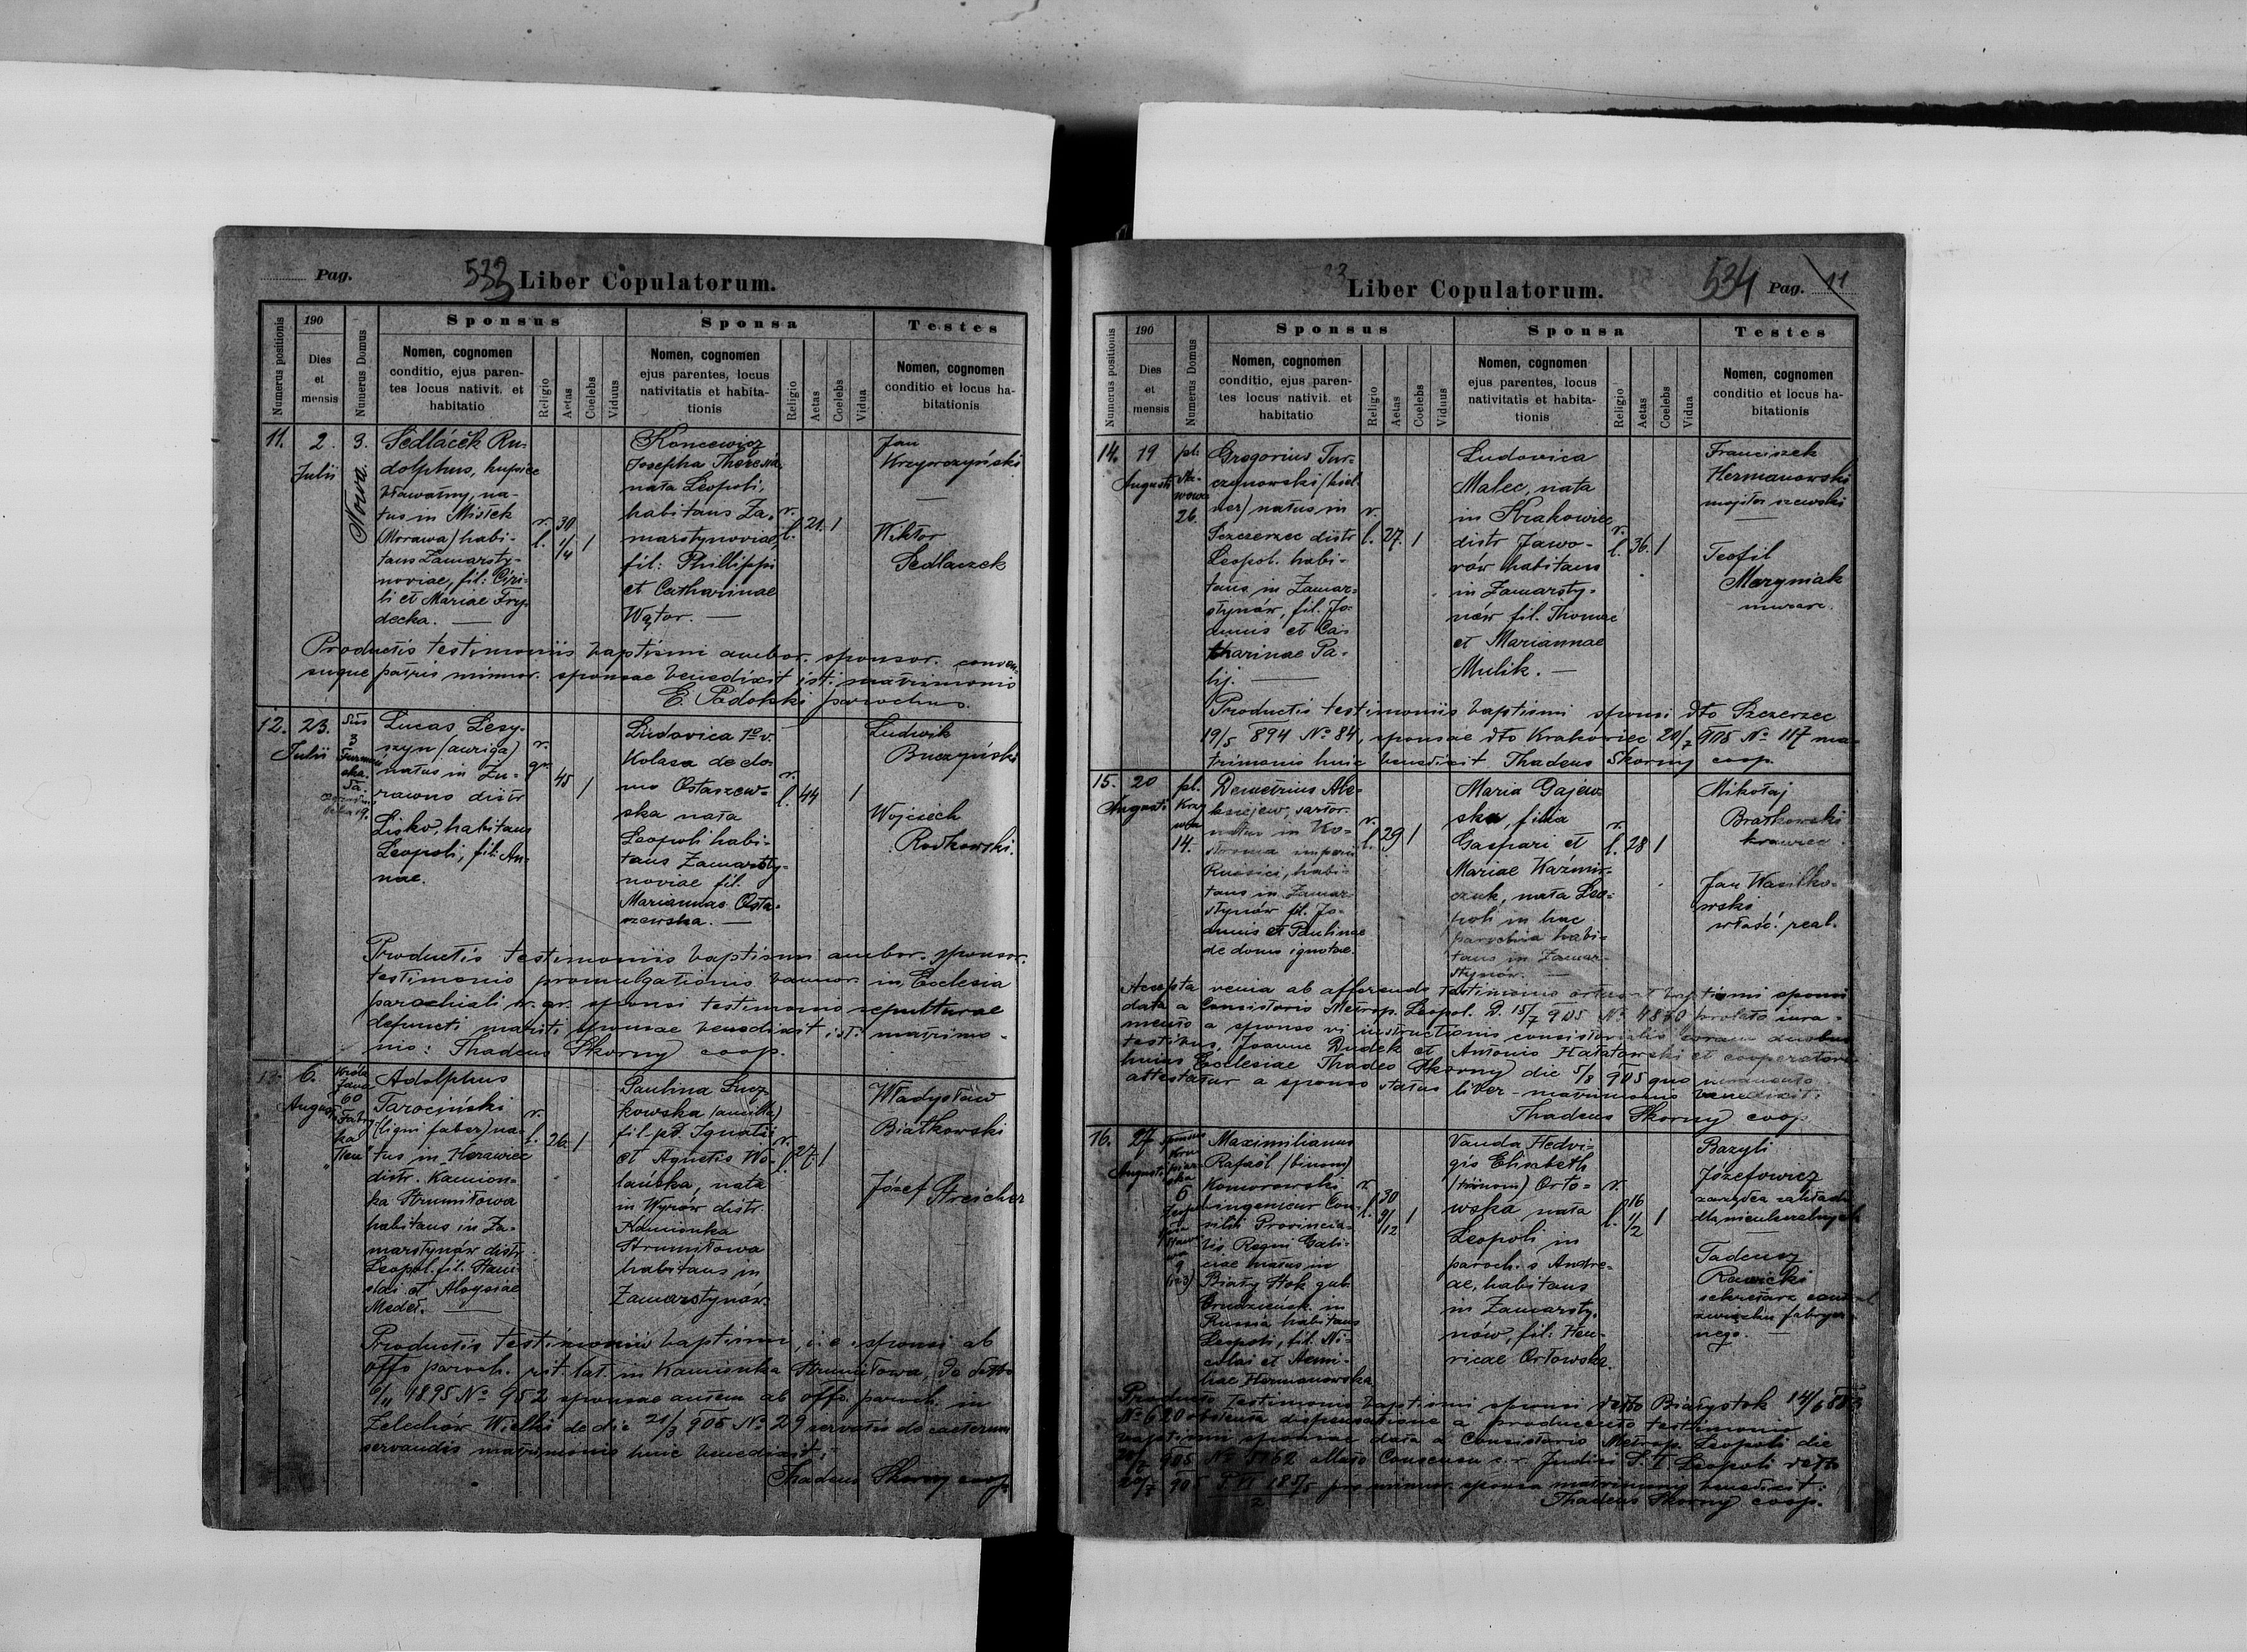 Pag.
533
Liber Copulatorum.
Numerus positionis
190
Dies
et
mensis
Numerus Domus
Sponsus
Nomen, cognomen
conditio, ejus paren-
tes locus nativit. et
habitatio
Religio
Aetas
Coelebs
Viduus
Sponsa
Nomen, cognomen
ejus parentes, locus
nativitatis et habita-
tionis
Religio
Aetas
Coelebs
Vidua
Testes
Nomen, cognomen
conditio et locus ha-
bitationis
11.
2.
Julii
3.
Nowa.
Sedláček Ru-
dolphus, kupiec
bławatny, na-
tus in Mistek
(Morawa) habi-
tans Zamarsty-
noviae, fil: Ciri-
li et Mariae Fry-
decka.
r.
l.
30
1/4
1
Koncewicz
Josepha Theresia
nata Leopoli,
habitans Za-
marstynoviae,
fil: Phillippi
et Catharinae
Wątor.
r.
l.
21.
1
Jan
Krzyorczyński
Wiktor
Sedlaczek
Productis testimoniis baptismi ambor. sponsor.
suque patris minor. sponsae benedixit isti matrimonio
E. Padolski parochus.
12.
23.
Julii
3
Lucas Lesy-
szyn (auriga)
natus in Żu-
rawno distr
Lisko, habitans
Leopoli, fil. An-
nae.
r.
gr.
45
1
Ludovica 1o v.
Kolasa de do-
mo Ostaszew-
ska nata
Leopoli habi-
tans Zamarsty-
noviae fil.
Mariannae Osta-
szewska.
r.
l.
44
1
Ludwik
Buczyński
Wojciech
Rodkowski.
Productis testimoniis baptismi ambor. sponsor.
testimonio promulgationis bannor. in Ecclesia
parochiali r. gr. sponsi testimonio sepulturae
defuncti mariti sponsae benedixit isti matrimo-
nio: Thadeus Skorny coop.
6.
August.
60
Adolphus
Tarociński
(ligni faber) na-
tus in
distr. Kamion-
ka Strumiłowa
habitans in Za-
marstynów distr
Leopol. fil. Stani-
slai et Aloysiae
Medeł.
r.
l.
26.
1
Paulina Łucz-
kowska (ancilla)
fil. pd. Ignatii
et Agnetis Wo-
lańska, nata
in Wyrów distr.
Kamionka
Strumiłowa
habitans in
Zamarstynów
r.
l.
27.
1
Władysław
Białkowski
Józef Streicher
Productis testimoniis baptismi, i. e. sponsi ab
offo paroch. rit. lat. in Kamionka Strumiłowa, do dtto
6/11 1895 No 952 sponsae autem ab offo. paroch. in
Żelechów Wielki de die 21/3 905 No 29 servatis de caeterum
servandis matrimonio huic benedixit:
Thadeus Skorny coop.
Liber Copulatorum.
534
Pag. 11
Numerus positionis
190
Dies
et
mensis
Numerus Domus
Sponsus
Nomen, cognomen
conditio, ejus paren-
tes locus nativit. et
habitatio
Religio
Aetas
Coelebs
Viduus
Sponsa
Nomen, cognomen
ejus parentes, locus
nativitatis et habita-
tionis
Religio
Aetas
Coelebs
Vidua
Testes
Nomen, cognomen
conditio et locus ha-
bitationis
14.
19
Augusti
pl.
26.
Gregorius Tur-
czynowski
natus in
Szczerzec distr
Leopol. habi-
tans in Zamar-
stynów, fil. Jo-
annis et Ca-
tharinae Pa-
lij.
r.
l.
27.
1
Ludovica
Malec, nata
in Krakowiec
distr Jawo-
rów habitans
in Zamarsty-
nów fil. Thomae
et Mariannae
Mulik.
r.
l.
36.
1
Franciszek
Hermanowski
majster szewski
Teofil
Maryniak
murarz.
Productis testimoniis baptismi sponsi dto Szczerzec
19/5 894 No 84, sponsae dto Krakowiec 20/7 905 No 117 ma-
trimonio huic benedixit Thadeus Skorny coop.
15.
20
Augusti
pl.
14.
Demetrius Ale-
ksiejew, sartor
natus in Ko-
stroma imperii
Russici, habi-
tans in Zamar-
stynów fil. Jo-
annis et Paulinae
de domo ignotae.
r.
l.
29
1
Maria Gajew-
ska, filia
Gaspari et
Mariae Kaźmir-
czuk, nata Leo-
poli in hac
parochia habi-
tans in Zamar-
stynów.
r.
l.
28
1
Mikołaj
Bratkowski
krawiec
Jan Wasilko-
wski
właść. real.
Accepta venia ab afferendo testimonio ortus et baptismi sponsi
data a Consistorio Metrop. Leopol. D. 15/7 905 No 4850 prolato iura-
mento a sponso vi instructionis consistorialis coram duobus
testibus, Joanne Dudek et Antonio Hałatowski et cooperatore
huius Ecclesiae Thadeo Skorny die 5/8 905 quo iuramento
attestatur a sponso status liber - matrimonio benedixit:
Thadeus Skorny coop.
16.
27
Augusti
6
9
Maximilianus
Rafaël (binom)
Komorowski
ingenieur Con-
silii Provincia-
lis Regni Gali-
ciae natus in
Biały stok gub.
in
Russia habitans
Leopoli, fil. Ni-
colai et Aemi-
liae Hermanowska
r.
l.
30
9/12
1
Vanda Hedvi-
gis Elisabeth
(trinom) Orło-
wska nata
Leopoli in
paroch. s Andre-
ae, habitans
in Zamarsty-
nów, fil. Hen-
ricae Orłowska.
r.
l.
16
1/2
1
Bazyli
Józefowicz
zarządca zakładu
dla nieuleczalnych
Tadeusz
Rawicki
sekretarz
związku fabrycz-
nego.
Producto testimonio baptismi sponsi dtto Białystok 14/6
No 620 obtenta dispensatione a producendo testimonio
baptismi sponsae data a Consistorio Metrop. Leopoli die
905 No 5162 allato Consensu c. r. Judici S. I. Leopoli detto
20/7 905 pro minor. sponsa matrimonio benedixit:
Thadeus Skorny coop.